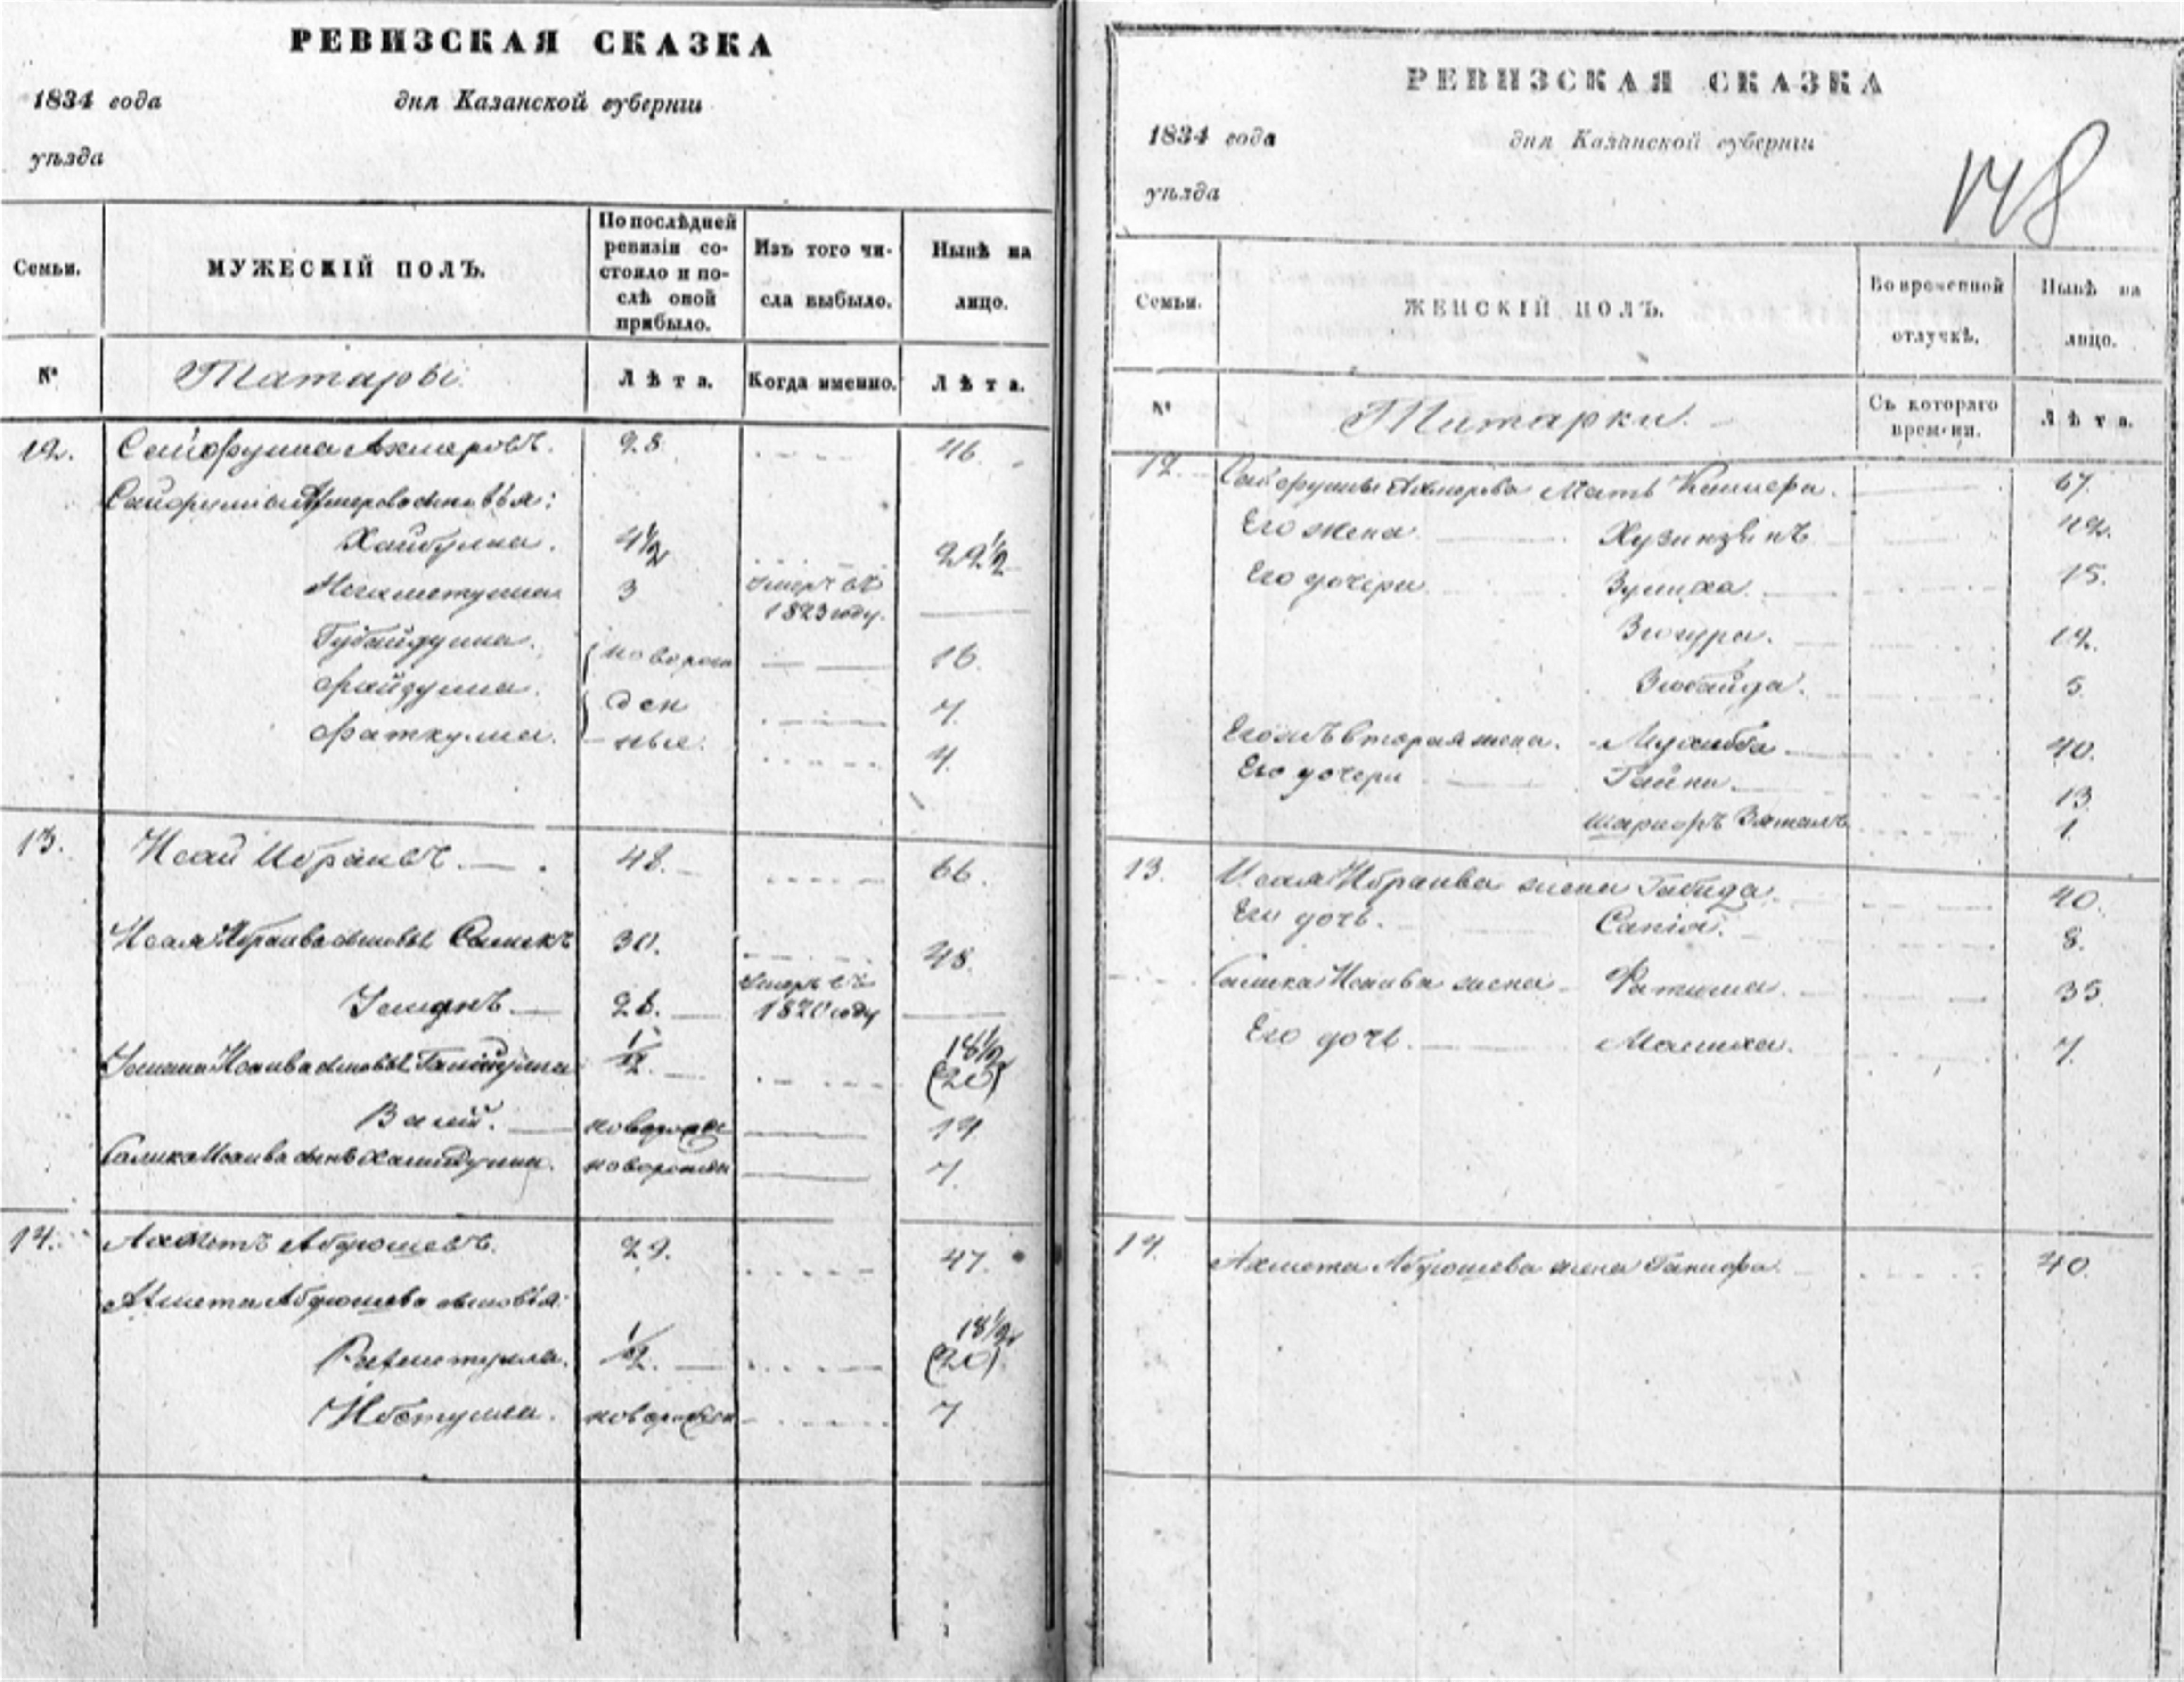 РЕВИЗСКАЯ СКАЗКА
1834 года дня Казанской губерніи
уѣзда
Семьи.
МУЖЕСКІЙ ПОЛЪ.
По послѣдней
ревизіи со-
стояло и по-
слѣ оной
прибыло.
Изъ того чи-
сла выбыло.
Нынѣ на
лицо.
№
Татары
Лѣта.
Когда именно.
Лѣта.
12. Сайфулла Ахмеровъ. 28 46.
сыновья:
Хайбулла. 4½ 22½
Мегаметулла 3 умеръ въ
1823 году.
Губайдулла. новорож 16.
Файзулла. ден 7.
Фаткулла. ные. 4.
13. Исай Ибраевъ. 48. 66.
Исая Ибраева сыновья Салихъ 30. 48.
Усманъ 26. умеръ въ
1820 году
Усмана Исаева сыновья 1/2. 18½
(20)
Валей. новорожден 14
Салиха Исаева сынъ Хамидулла. новорожден 7.
14. Ахметъ Абдюшевъ. 29. 47.
Ахмета Абдюшева сыновья:
Рахметулла. 1/2. 18½
(20)
новорожден 7
РЕВИЗСКАЯ СКАЗКА
1834 года дня Казанской губерніи
148
уѣзда
Семьи.
ЖЕНСКІЙ ПОЛЪ.
Во временной
отлучкѣ.
Нынѣ на
лицо.
№
Татарки.
Съ котораго
времени.
Лѣта.
12. Сайфуллы Ахмерова Мать 67.
Его жена 42.
Его дочери Зулиха 15.
Зюгура. 12.
Зюбайда. 5
Егожъ вторая жена. 40.
Его дочери Гайни. 13
1.
13. Исая Ибраева жена Габида. 40.
Его дочь. 8.
Салиха Исаева жена Фатима. 35.
Его дочь. Малиха. 7.
14. Ахмета Абдюшева жена Ганифа. 40.